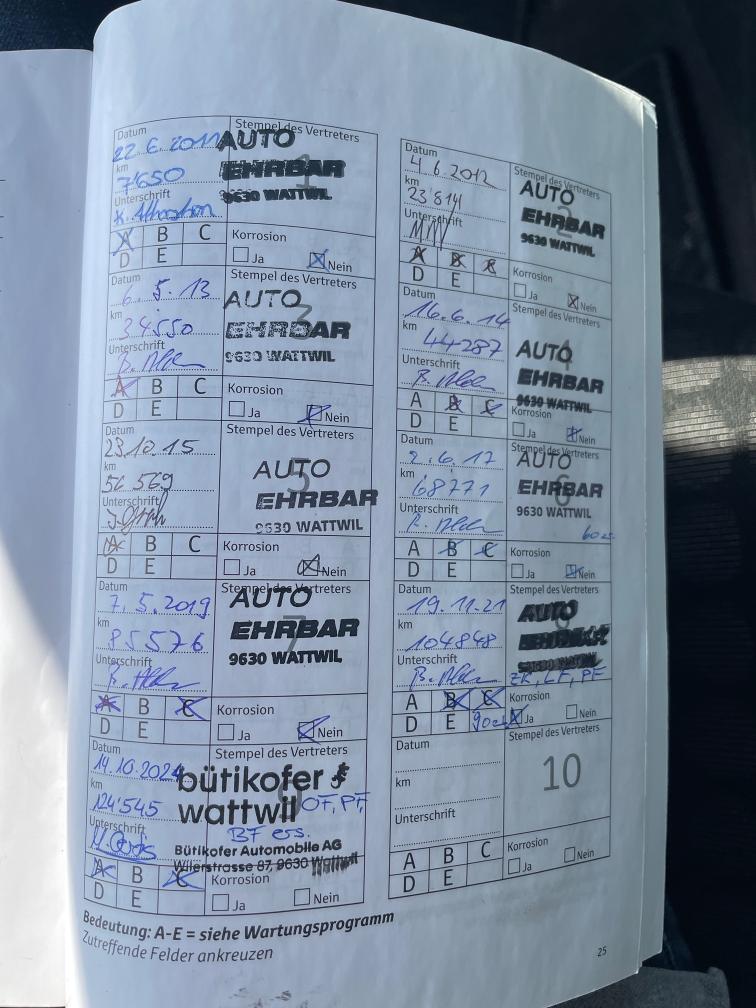 Datum
Stempel des Vertreters
22.6.2011
AUTO
km
EHRBAR
1
7'650
9630 WATTWIL
Unterschrift
A B C
Korrosion
D E
Ja Nein
Datum
Stempel des Vertreters
4.6.2012
AUTO
km
EHRBAR
2
23'814
9630 WATTWIL
Unterschrift
A B C
Korrosion
D E
Ja Nein
Datum
Stempel des Vertreters
6.5.13
AUTO
km
3
34550
EHRBAR
Unterschrift
9630 WATTWIL
A B C
Korrosion
D E
Ja Nein
Datum
Stempel des Vertreters
16.6.14
km
AUTO
4
44287
EHRBAR
Unterschrift
9630 WATTWIL
A B C
Korrosion
D E
Ja Nein
Datum
Stempel des Vertreters
23.10.15
AUTO
5
km
EHRBAR
56 569
9630 WATTWIL
Unterschrift
A B C
Korrosion
D E
Ja Nein
Datum
Stempel des Vertreters
2.6.17
AUTO
km
EHRBAR
6
68771
9630 WATTWIL
Unterschrift
A B C
Korrosion
D E
Ja Nein
Datum
Stempel des Vertreters
7.5.2019
AUTO
km
EHRBAR
7
85576
9630 WATTWIL
Unterschrift
A B C
Korrosion
D E
Ja Nein
Datum
Stempel des Vertreters
19.11.21
AUTO
km
EHRBAR
104848
Unterschrift
ZK, LF, PF
A B C
Korrosion
D E
Ja Nein
Datum
Stempel des Vertreters
14.10.2024
bütikofer
km
wattwil
124'545
OF, PF,
Unterschrift
BF ers.
Bütikofer Automobile AG
Wilerstrasse 87, 9630 Wattwil
A B C
Korrosion
D E
Ja Nein
Datum
Stempel des Vertreters
10
km
Unterschrift
A B C
Korrosion
D E
Ja Nein
Bedeutung: A-E = siehe Wartungsprogramm
Zutreffende Felder ankreuzen
25